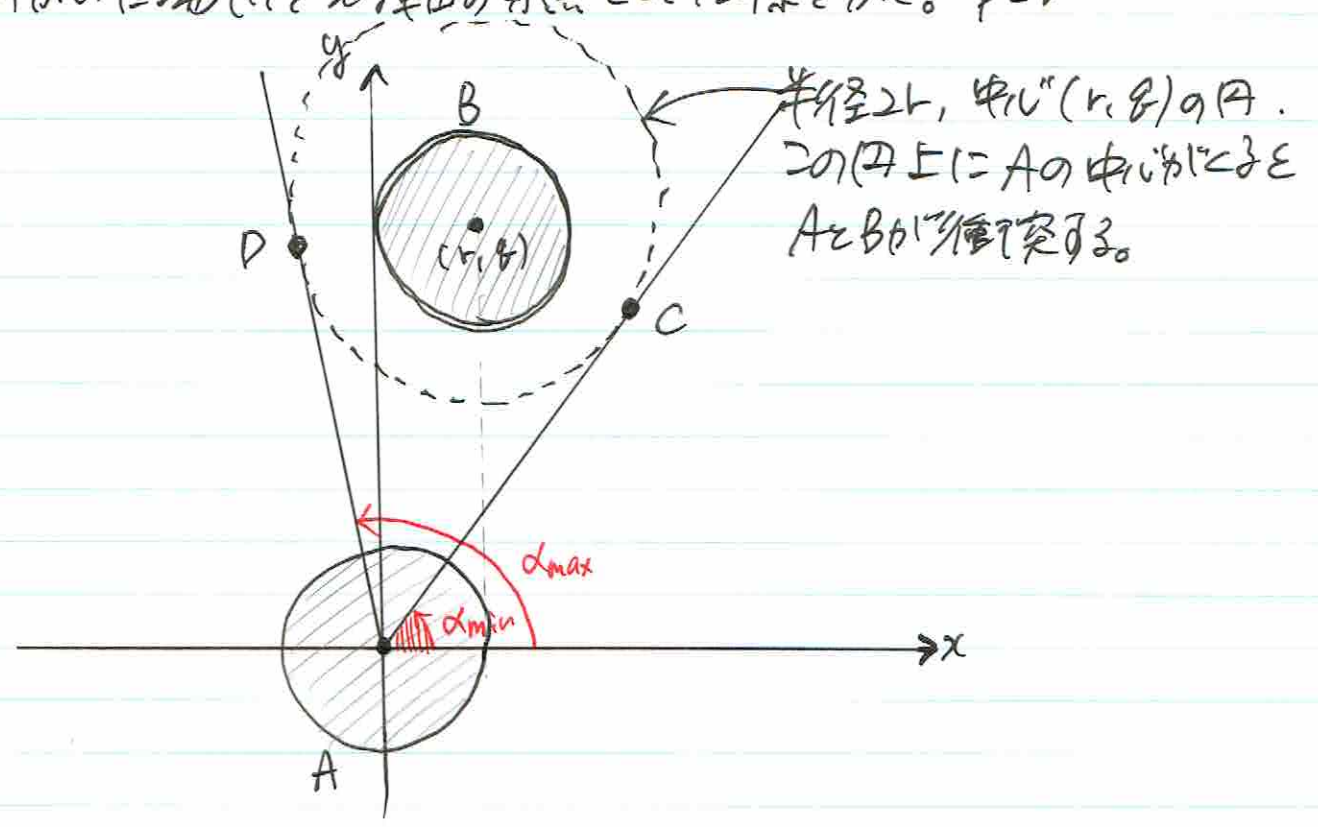 y
B
半径2r, 中心(r, q)の円.
この円上にAの中心がくると
AとBが衝突する。
D
(r, q)
C
αmax
αmin
x
A